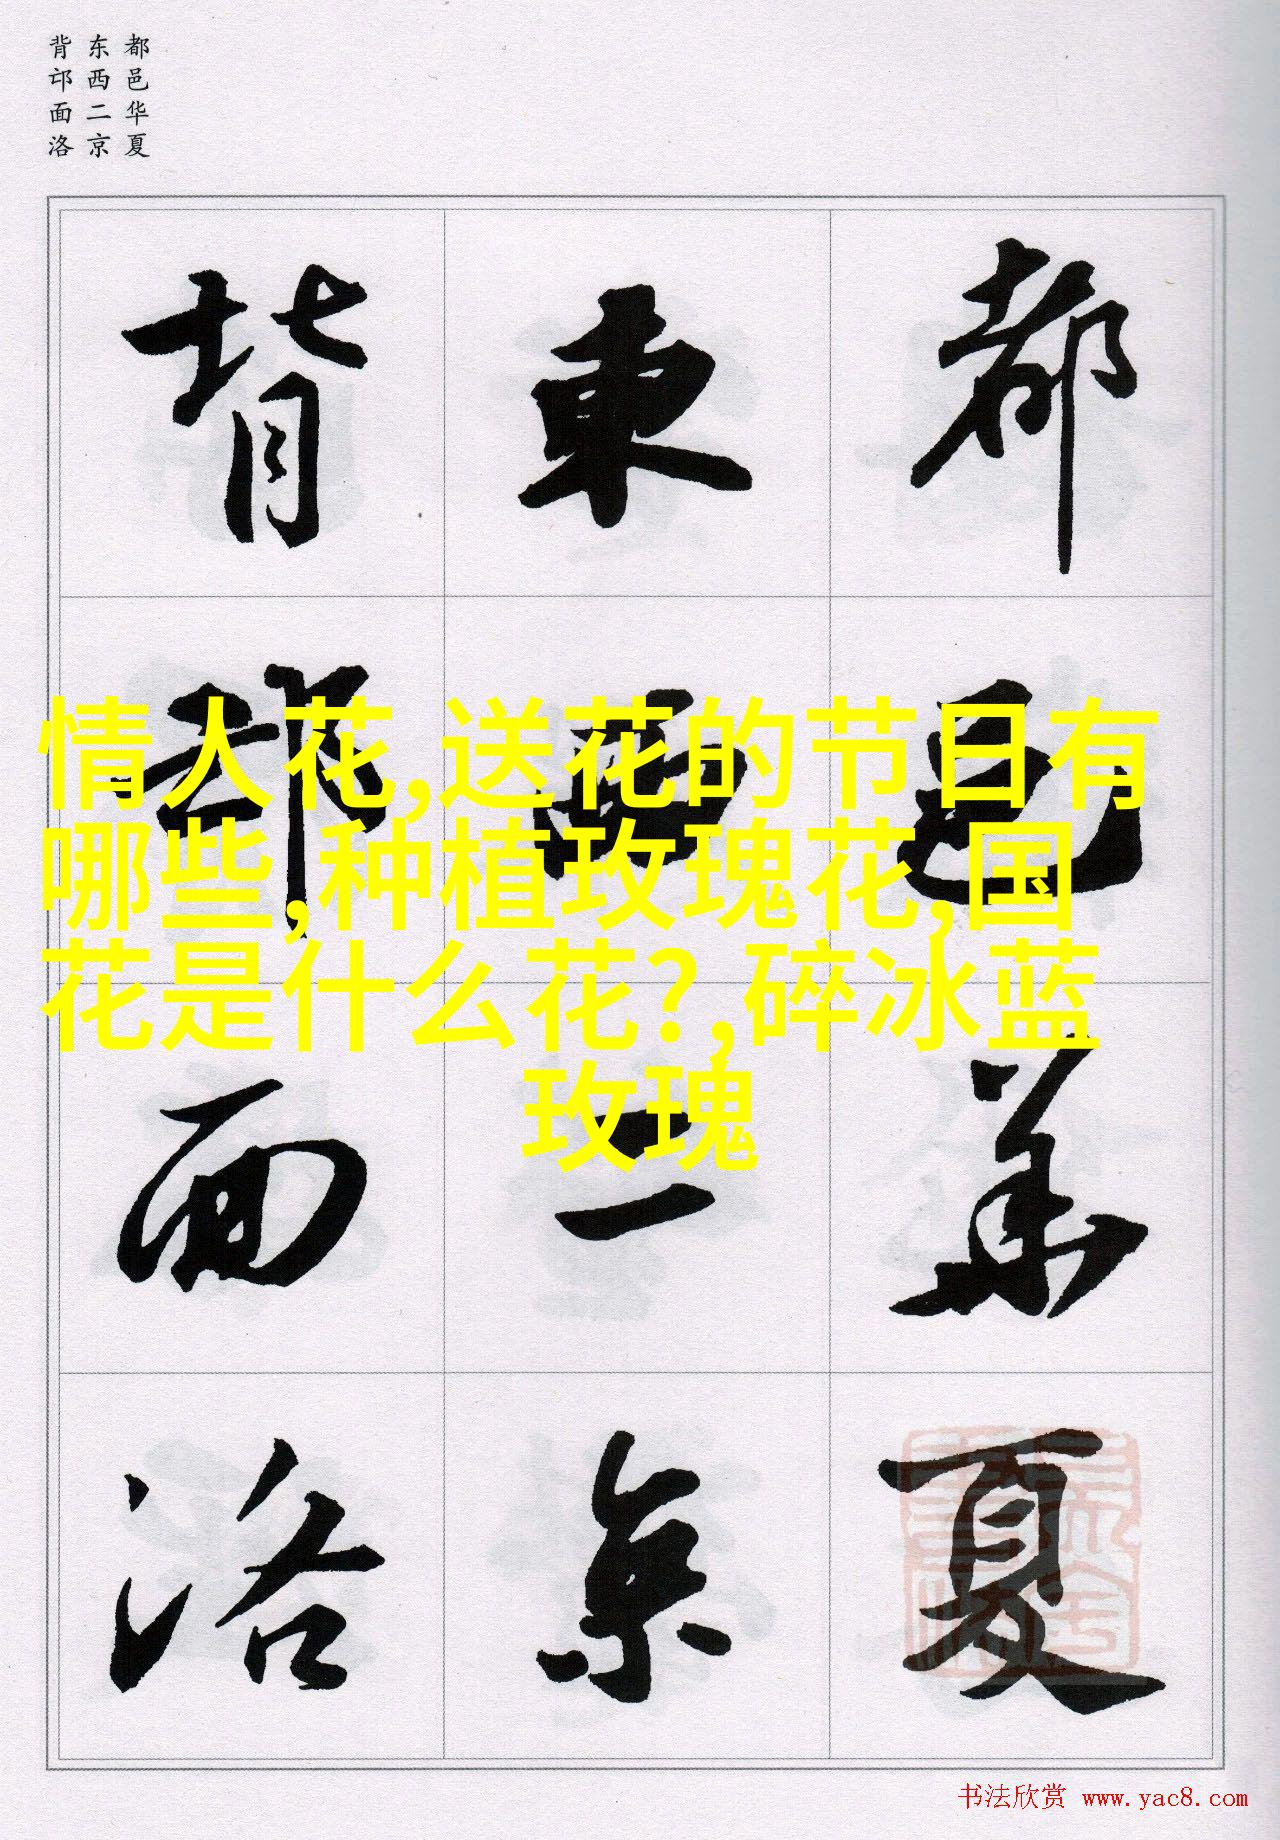 都邑华夏
东西二京
背邙面洛
都邑華夏
東西二京
背邙面洛
情人花,送花的节日有
哪些,种植玫瑰花,国
花是什么花?,碎冰蓝
玫瑰
书法欣赏 www.yac8.com